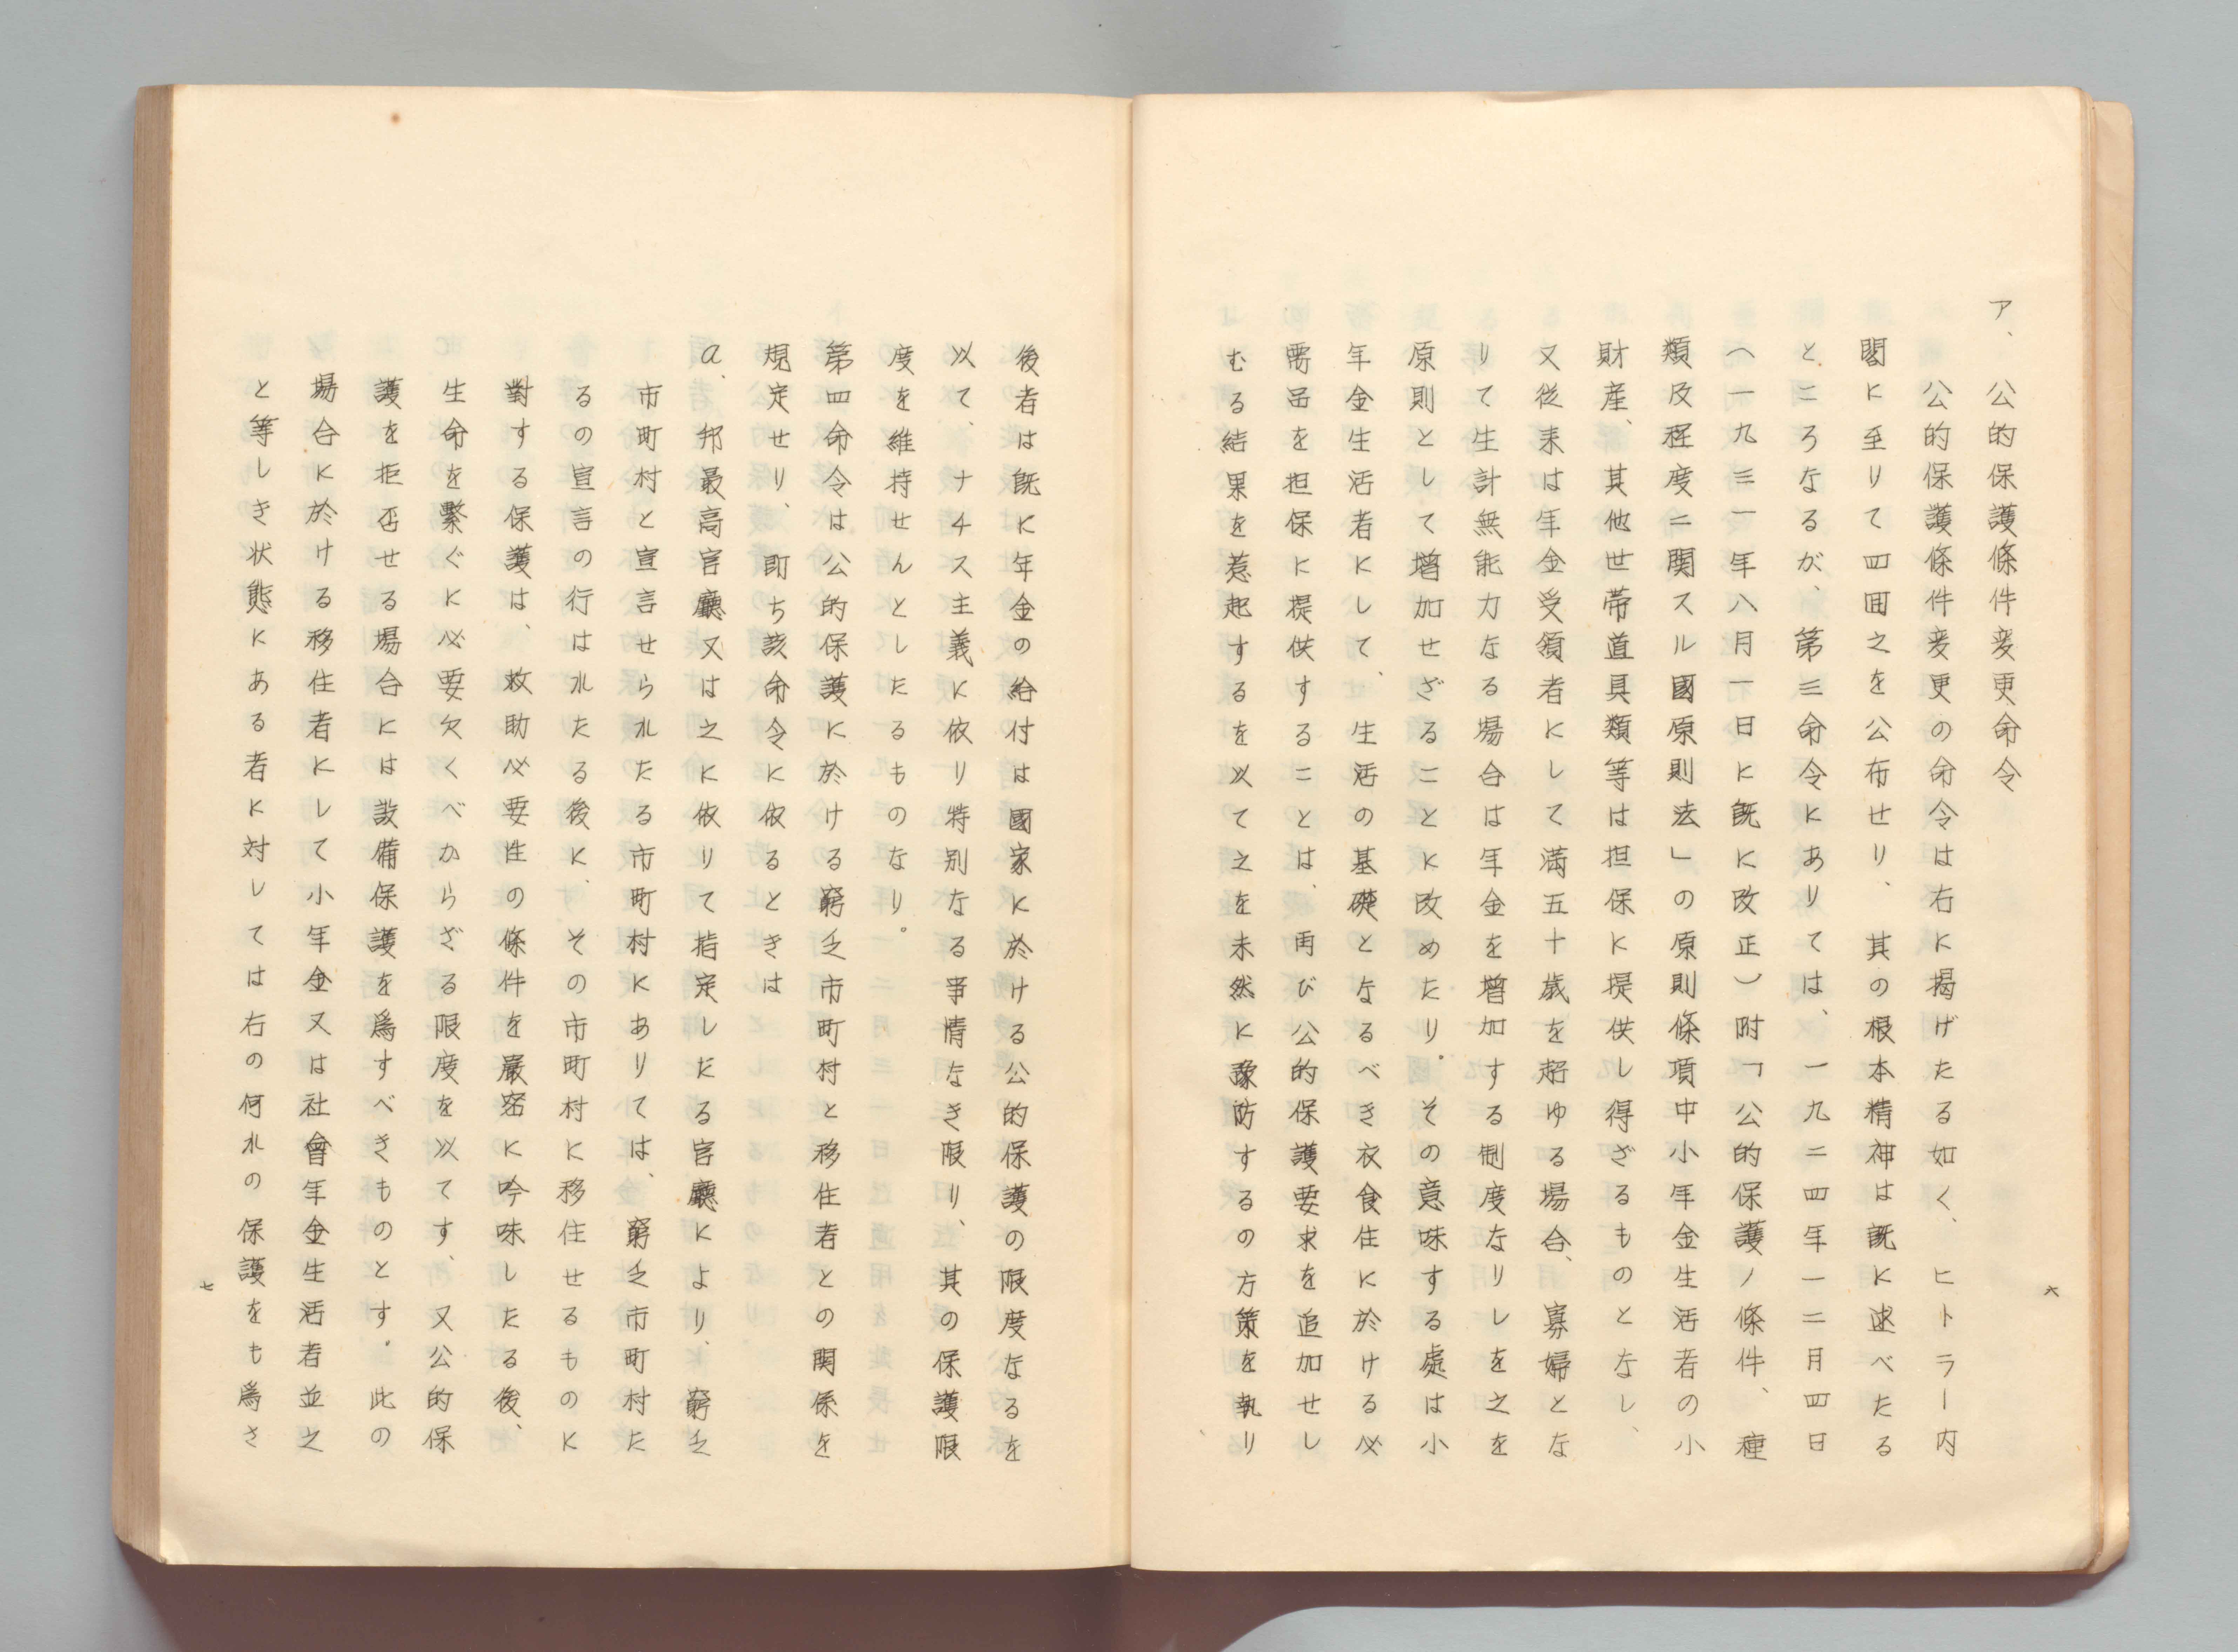 ア、公的保護條件変更命令
公的保護條件変更の命令は右に揭げたる如く、ヒトラー内
閣に至りて四囬之を公布せり、其の根本精神は既に述べたる
ところなるが、第三命令にありては、一九二四年一二月四日
（一九三一年八月一日に既に改正）附「公的保護ノ條件、種
類及程度ニ関スル國原則法」の原則條項中小年金生活者の小
財産、其他世帯道具類等は担保に提供し得ざるものとなし、
又従来は年金受領者にして満五十歳を超ゆる場合、寡婦とな
りて生計無能力なる場合は年金を増加する制度なりしを之を
原則として増加せざることに改めたり。その意味する處は小
年金生活者にして、生活の基礎となるべき衣食住に於ける必
需品を担保に提供することは、再び公的保護要求を追加せし
むる結果を惹起するを以て之を未然に豫防するの方策を執り
六
後者は既に年金の給付は國家に於ける公的保護の限度なるを
以て、ナチス主義に依り特別なる事情なき限り、其の保護限
度を維持せんとしたるものなり。
第四命令は公的保護に於ける窮乏市町村と移住者との関係を
規定せり、即ち該命令に依るときは
a、邦最高官廳又は之に依りて指定しだる官廳により、窮乏
市町村と宣言せられたる市町村にありては、窮乏市町村た
るの宣言の行はれたる後に、その市町村に移住せるものに
對する保護は、救助必要性の條件を嚴密に吟味したる後、
生命を繫ぐに必要欠くべからざる限度を以てす、又公的保
護を拒否せる場合には設備保護を爲すべきものとす。此の
場合に於ける移住者にして小年金又は社會年金生活者並之
と等しき状態にある者に対しては右の何れの保護をも爲さ
七